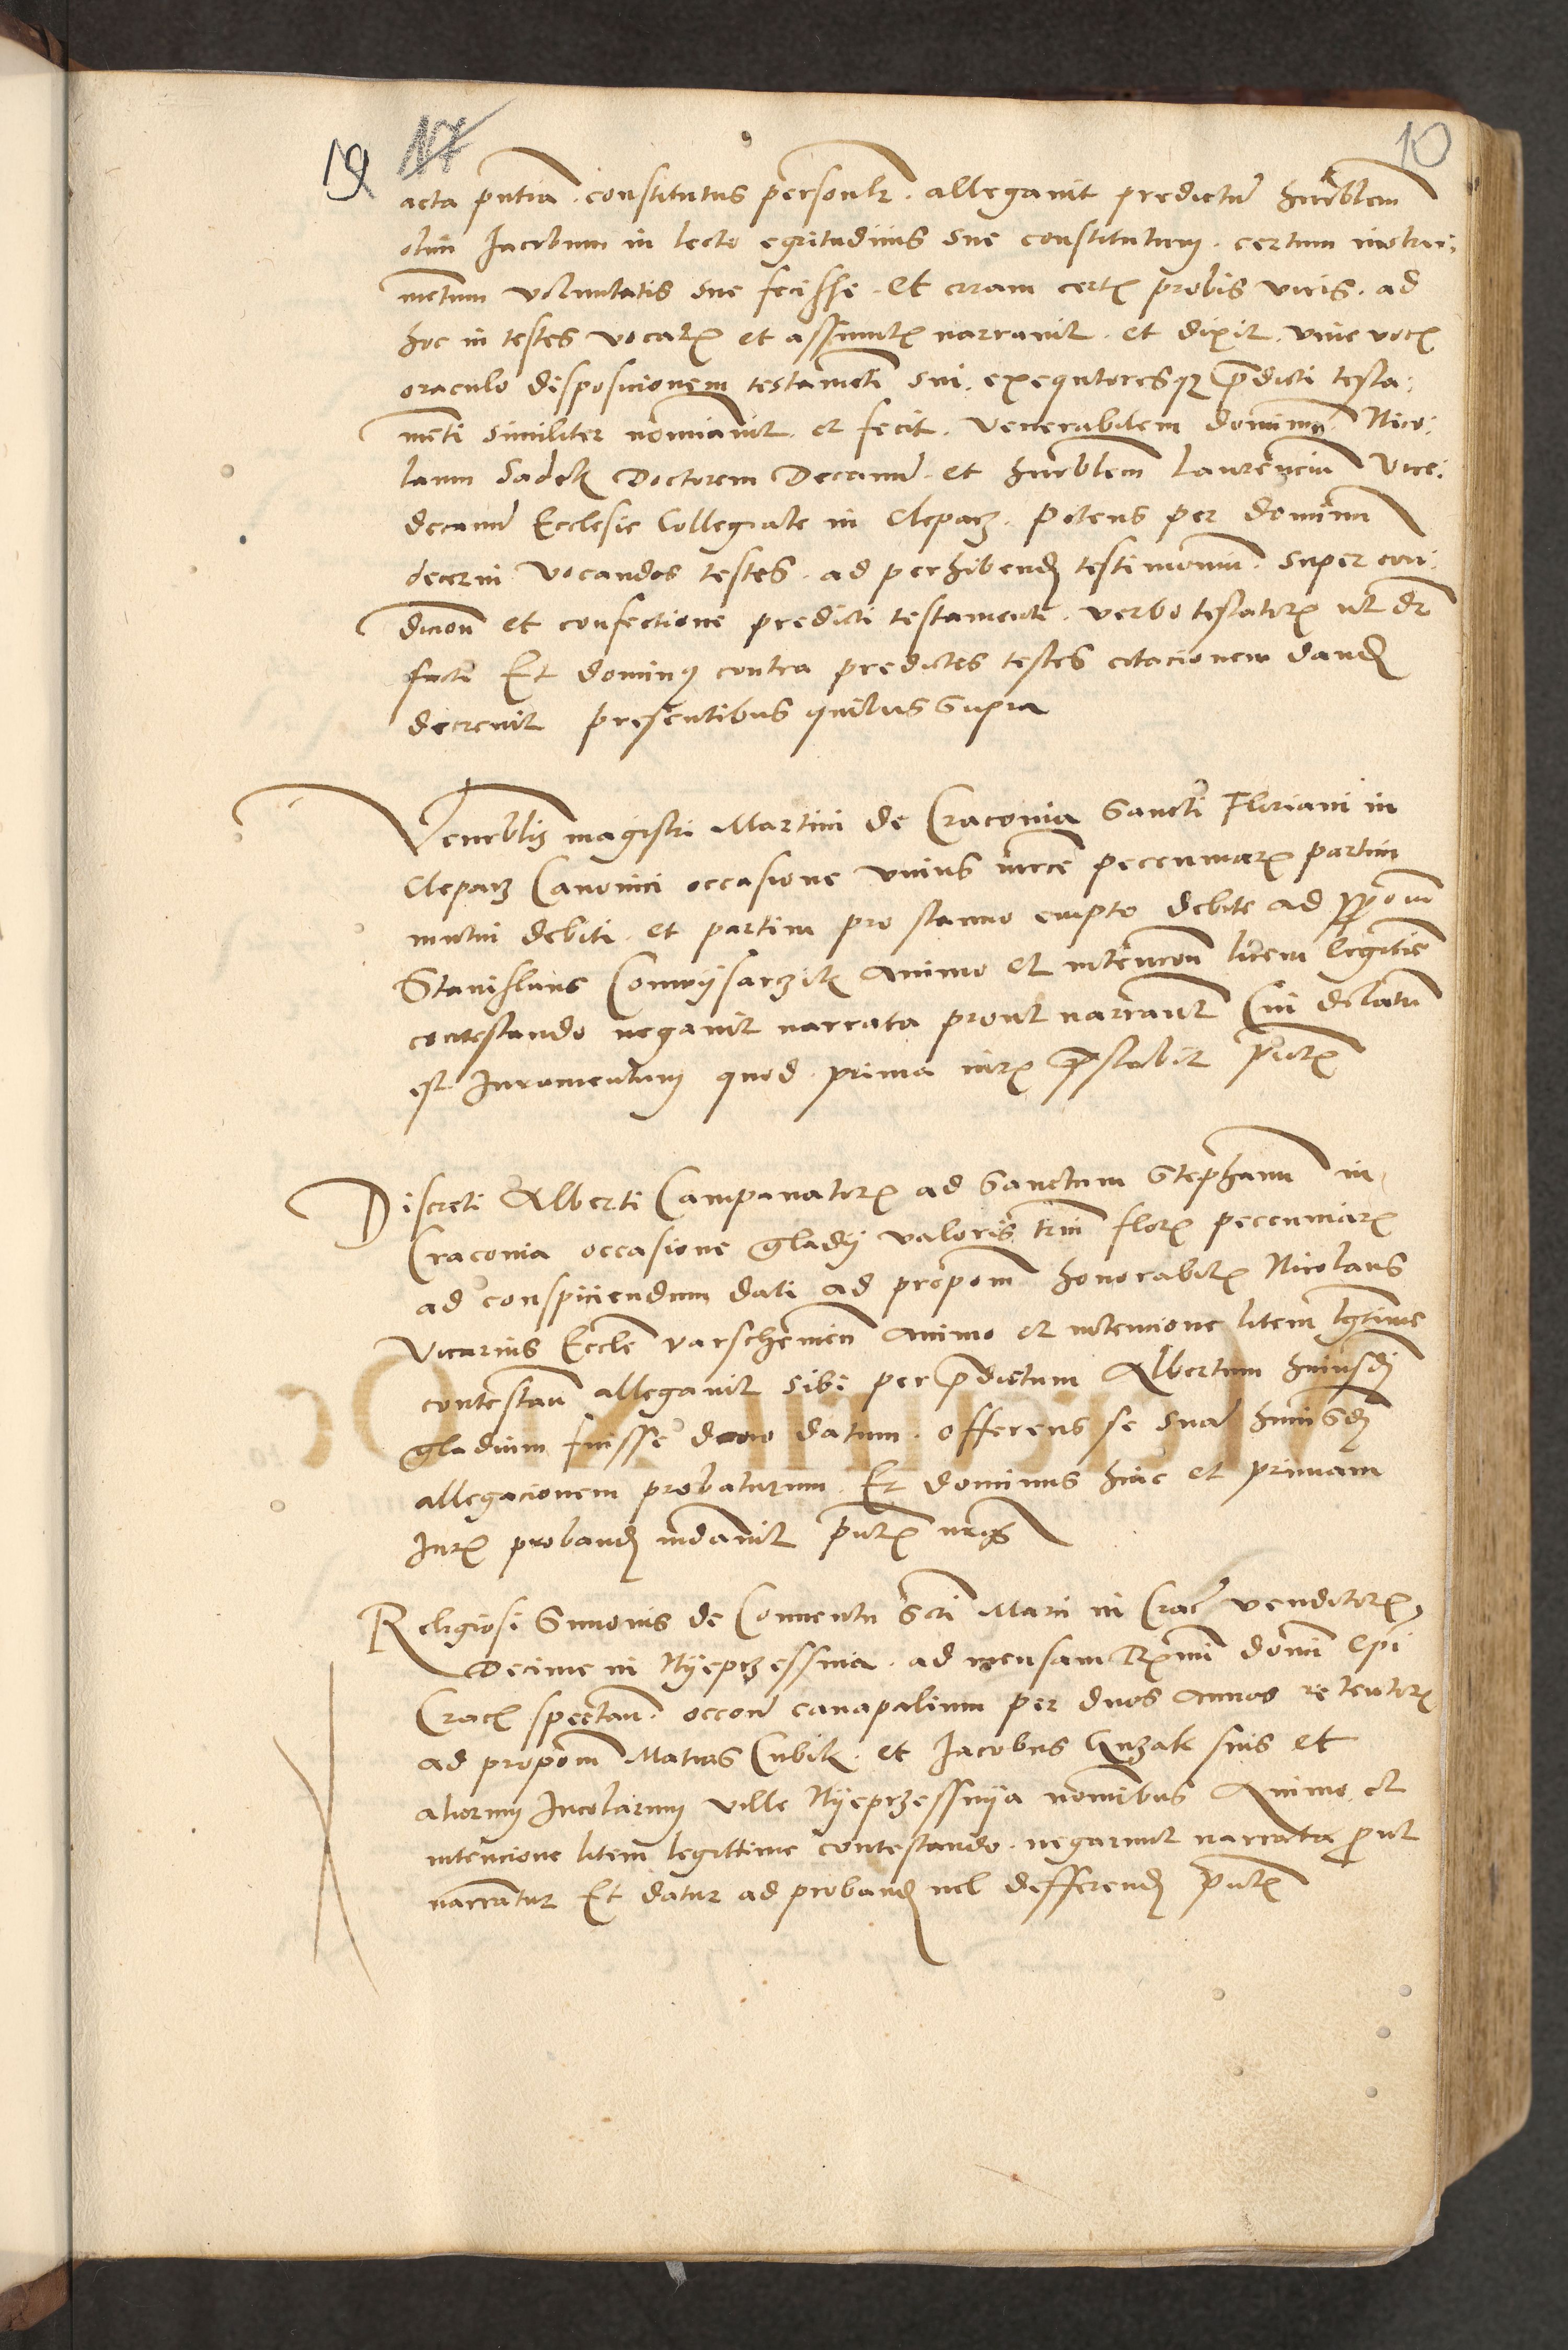 19 17
10
acta pntia constitutus personlr allegavit predictu hnrblem
olim Jacobum in lecto egritudinis sue constitutum certum instru:
mentum voluntatis sue fecisse et coram certis probis viris ad
hoc in testes vocatis et assumptis narravit et dixit vive vocis
oraculo disposicionem testamenti sui exequtoresqz predicti testa:
menti similiter nominavit et fecit venerabilem dominum Nico:
laum Sadek Doctorem Decanu et hnrblem Laurenciu Vice:
decanu Ecclesie Collegiate in Clepacz Petens per dominu
decerni vocandos testes ad perhibend testimoniu super con:
dicion et confectione predicti testamenti verbo testatoris ut dr
facti Et dominus contra predictos testes citacionem dand
decrevit presentibus quibus supra
Venerblis magistri Martini de Craconia Sancti Floriani in
Clepacz Canonici occasione unius mrce pecuniar partim
mutui debiti et partim pro stanno empto debite ad ppom
Stanislaus Conwysarczik animo et intencon litem legitime
contestando negavit narrata prout narrant Cui delatu
est Juramentum quod prima iuris prestabit pntz
Discreti Alberti Campanatoris ad Sanctum Stephanu in
Craconia occasione gladij valoris trm flor pecuniar
ad conspiciendum dati ad propom honorabilis Nicolaus
Vicarius Eccle varschemien animo et intencione litem lgtime
contestan allegavit sibi per predictum Albertum huiusd
gladium fuisse dono datum offerens se suam huiusd
allegacionem probaturum Et dominus huic et primam
Juris proband mdavit pntz
Religiosi Simonis de Conventu scti Marci in Crac venditoris
Decime in Nyeprzessnia ad mensam Rmi domi Epi
Crac spectan occone canapalium per duos annos retentor
ad propom Matias Cubik et Jacobus Guzak suis et
aliorum Incolarum ville Nyeprzessnya nominibus Animo et
intencione litem legittime contestando negarunt narrata prout
narrantur Et datur ad proband vel defferend pntz